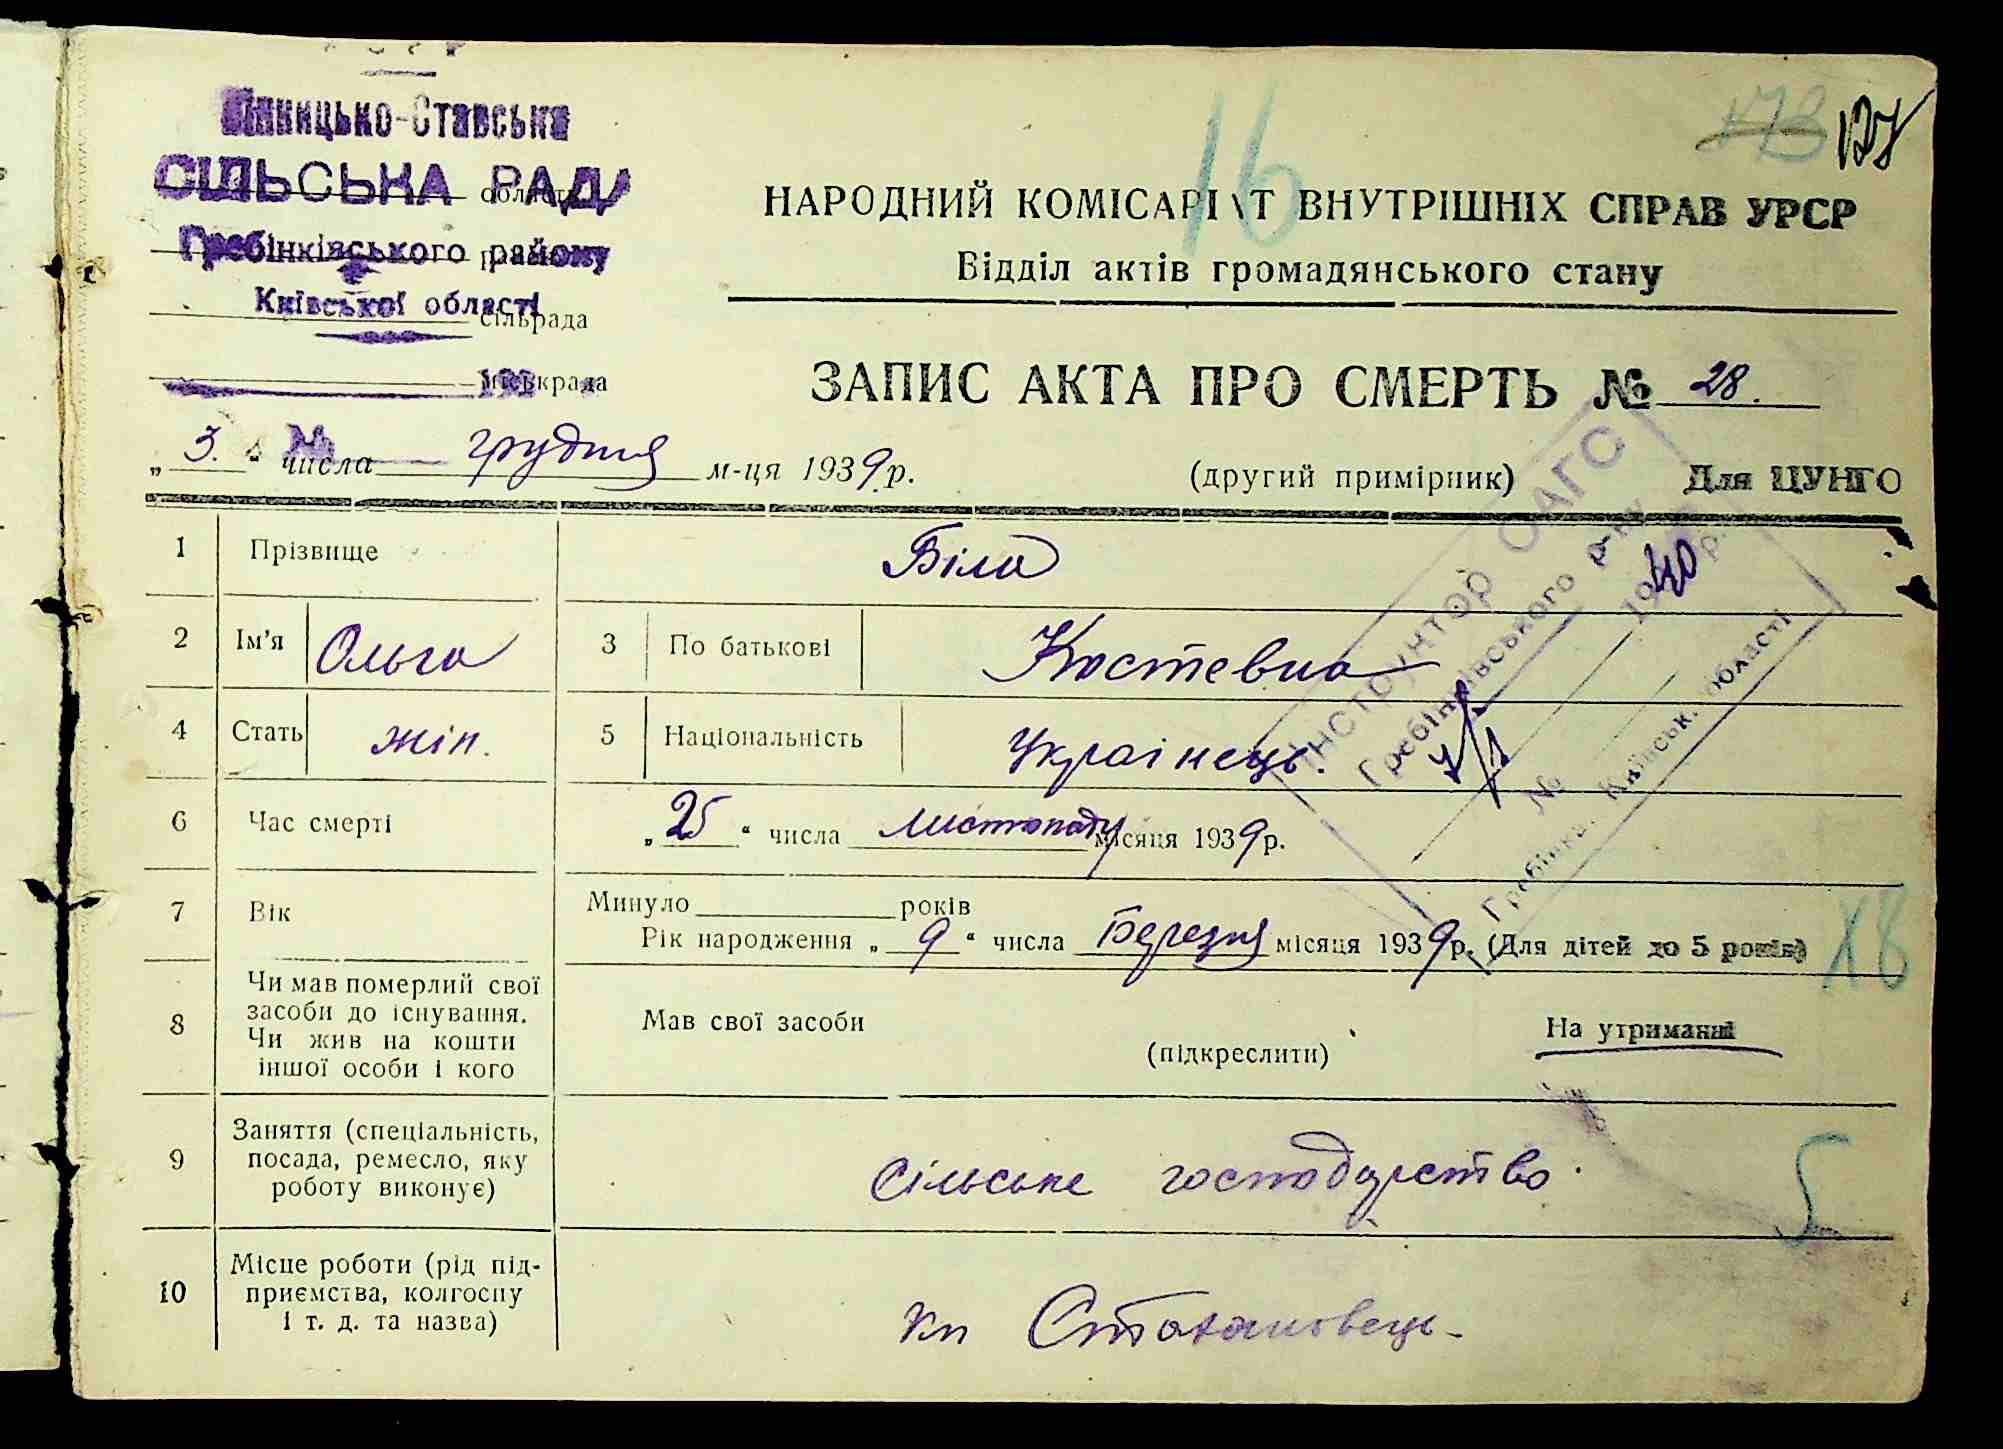 Вінницько-Ставська
СІЛЬСЬКА РАДА
області
Гребінківського району
Київської області
сільрада
міськрада
16
173 127
НАРОДНИЙ КОМІСАРІАТ ВНУТРІШНІХ СПРАВ УРСР
Відділ актів громадянського стану
ЗАПИС АКТА ПРО СМЕРТЬ № 28.
„3.“ числа грудня м-ця 1939 р.
(другий примірник) Для ЦУНГО
ІНСТРУКТОР ОАГС
Гребінківського р-ну
№ 1940 р.
Гребінка, Київськ. області
1 Прізвище Біла
2 Ім'я Ольга 3 По батькові Костевна
4 Стать жін. 5 Національність Українець.
6 Час смерті „25“ числа листопаду місяця 1939 р.
7 Вік Минуло років
Рік народження „9“ числа Березня місяця 1939 р. (Для дітей до 5 років)
8 Чи мав померлий свої
засоби до існування.
Чи жив на кошти
іншої особи і кого
Мав свої засоби (підкреслити) На утриманні
9 Заняття (спеціальність,
посада, ремесло, яку
роботу виконує)
сільське господарство.
5
10 Місце роботи (рід під-
приємства, колгоспу
і т. д. та назва)
кп Стахановець